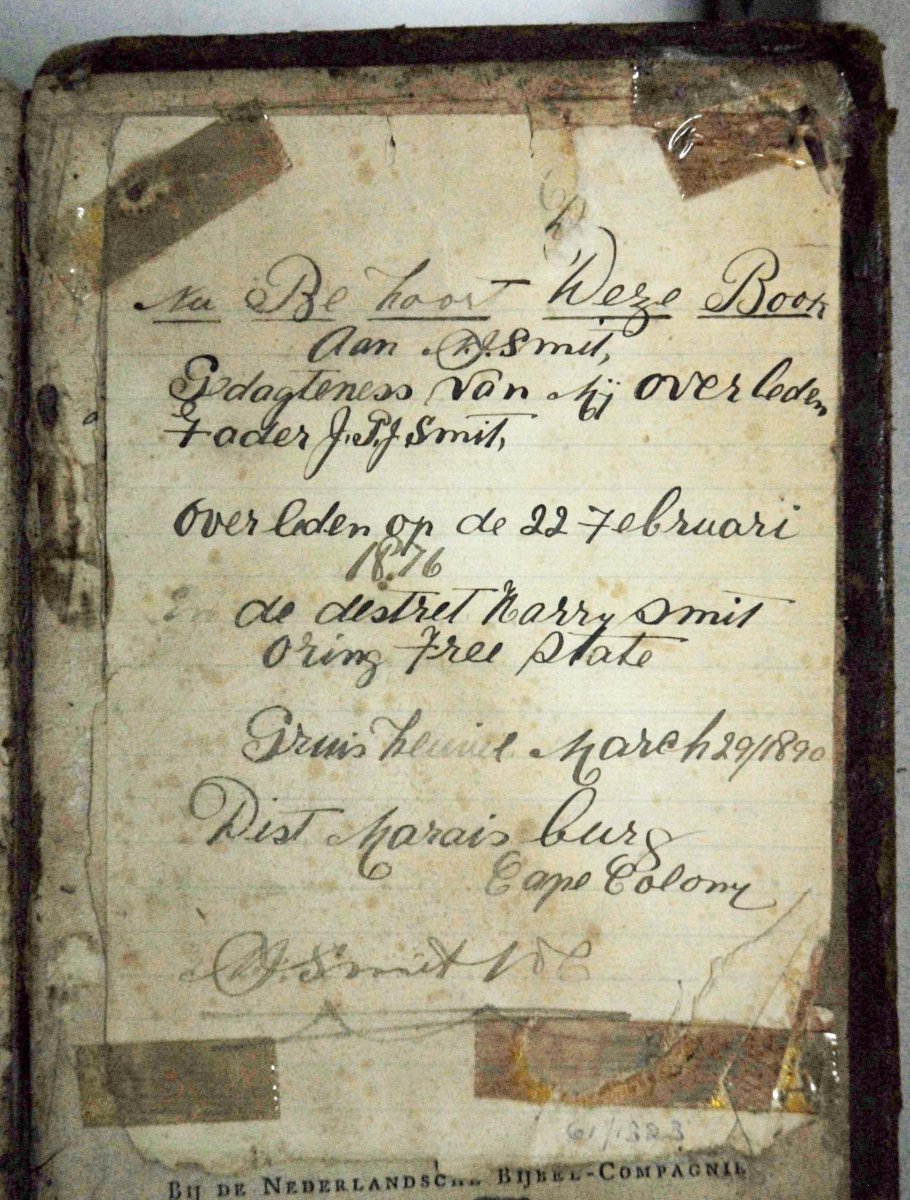 Nu Be hoort Deze Book
Aan P.J. Smit,
Gedagteness van Mij over leden
Fader J.P.J Smit,
over leden op de 22 Februari
1876
En de destret Harry Smit
Oring Free State
March 29/1890
Dist Marais burg
Cape Colony
J. Smit
61/1323
BIJ DE NEDERLANDSCHE BIJBEL-COMPAGNIE